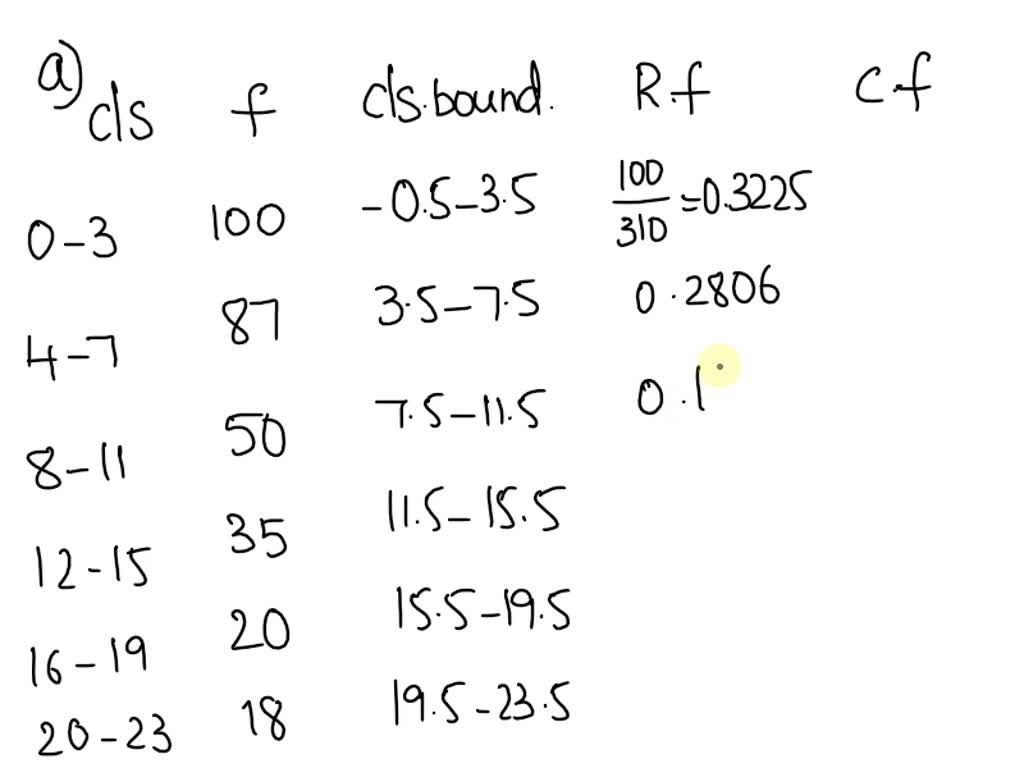 a) cls f cls.bound. R.f c.f
0-3 100 -0.5-3.5 100/310=0.3225
4-7 87 3.5-7.5 0.2806
8-11 50 7.5-11.5 0.1
12-15 35 11.5-15.5
16-19 20 15.5-19.5
20-23 18 19.5-23.5